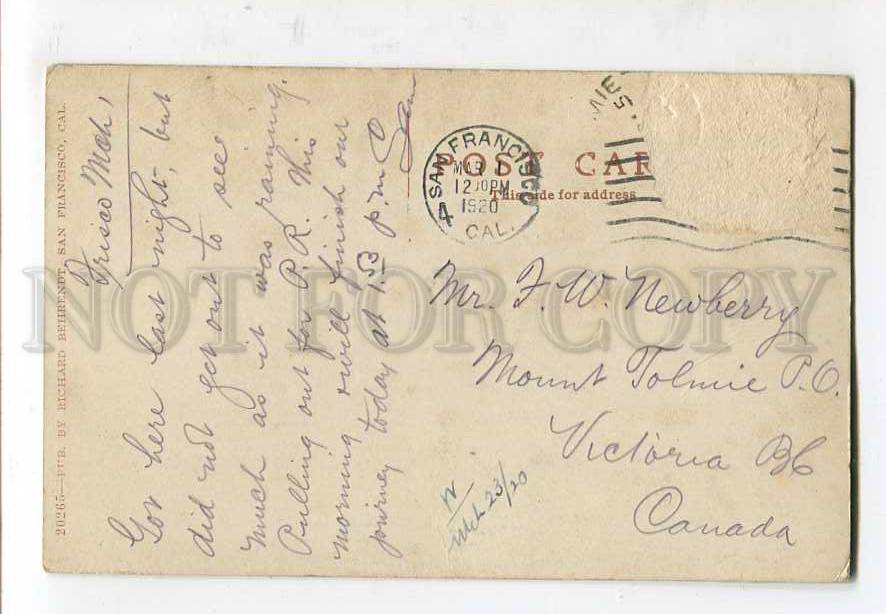 20265—PUB. BY RICHARD BEHRENDT, SAN FRANCISCO, CAL.
Frisco Mch 1
Got here last night, but
did not get out to see
much as it was raining.
Pulling out for P.R. this
morning & will finish our
journey today at 1.53 p.m.
Sam
POST CAR
This side for address
SAN FRANCISCO
4
MAR 1
12 30 PM
1920
CAL.
Mr. F. W. Newberry
Mount Tolmie P.O.
Victoria BC
Canada
Mch 23/20
NOT FOR COPY